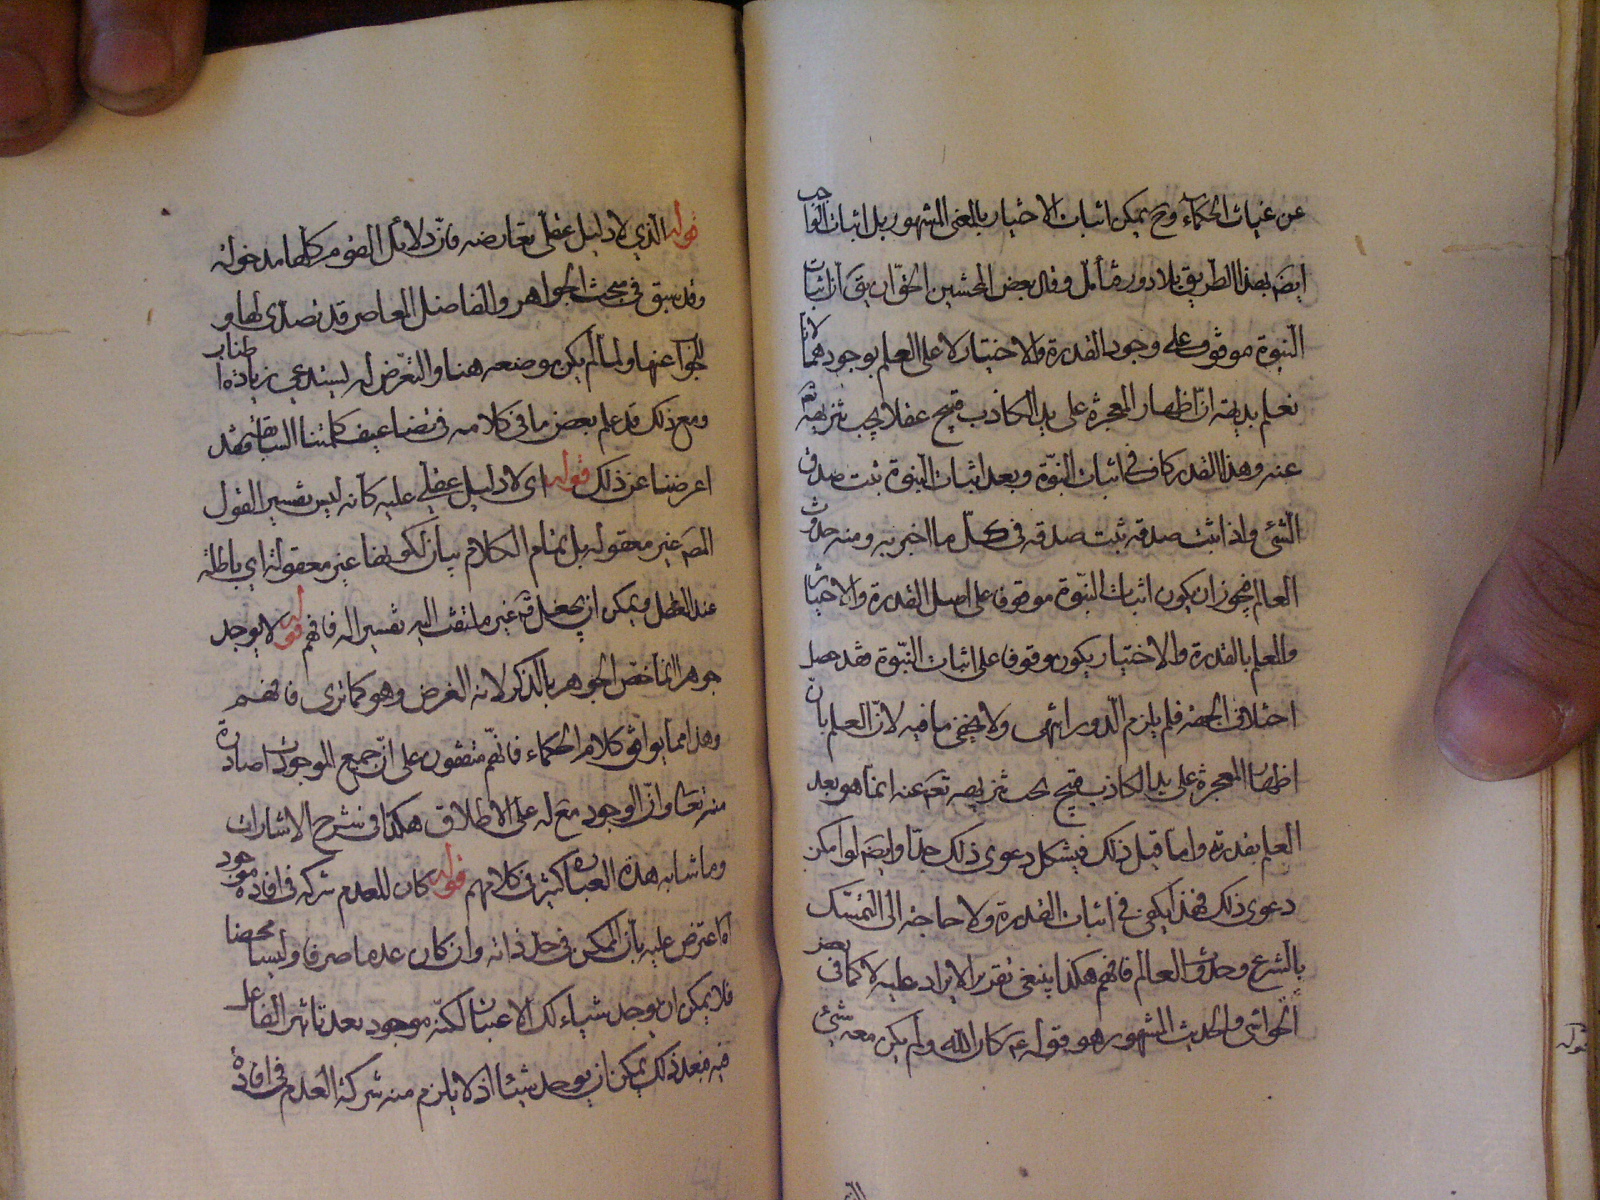 عن غياث الحكماء وح يمكن اثبات الاختيار بالمعنى المشهور بل اثبات الواجب
ايضَ بهذا الطريق بلا دور فتأمل وقال بعض المحشين الحق ان يقَ ان اثبات
النبوة موقوف على وجود القدرة والاختيار لا على العلم بوجودهما لانا
نعلم بديهة ان اظهار المعجزة على يد الكاذب قبيح عقلا يجب تنزيهه تعَ
عنه وهذا القدر كاف في اثبات النبوّة وبعد اثبات النبوة ثبت صدق
النبى واذا ثبت صدقه ثبت صدقه في كلّ ما اخبر به ومنه حدوث
العالم فيجوز ان يكون اثبات النبّوة موقوفا على اصل القدرة والاختيار
والعلم بالقدرة والاختيار يكون موقوفا على اثبات النبّوة فقد حصل
اختلاف الجهة فلم يلزم الدور انتهى ولا يخفى ما فيه لانّ العلم بان
اظهار المعجزة على يد الكاذب قبيح يجب تنزيهه تعَ عنه انمّا هو بعد
العلم بقدرته واما قبل ذلك فيشكل دعوى ذلك جدّا وايضَ لو امكن
دعوى ذلك فهذا يكفى في اثبات القدرة ولا حاجة الى التمسّك
بالشرع وحدوث العالم فافهم هكذا ينبغى تقرير الايراد عليه لا كما في بعض
الحواشى والحديث المشهور هو قوله عم كان الله ولم يكن معه شئ
قوله الذي لا دليل عقلى يعارضه فانّ دلائل القوم كلها مدخولة
وقد سبق في مبحث الجواهر والفاضل المعاصر قد تصدّى لها و
للجواب عنها ولما لم يكن موضعه هنا والتعّرض له يستدعى زيادة اطناب
ومع ذلك قد علم بعض ما في كلامه في تضاعيف كلمتنا السابقة فقد
اعرضنا عن ذلك قوله اى لا دليل عقلى عليه كأنه ليس تفسير القول
المصَ غير معقولة بل تمام الكلام بيان لكونها غير معقولة اي باطلة
عند العقل ويمكن ان يجعل قَه غير ملتفت اليه تفسيرا له فافهم قوله لا يوجد
جوهرا انّما خصّ الجوهر بالذكر لانه الغرض وهو كما ترى فافهم
وهذا مما يوافق كلام الحكماء فانّهم متفقون على انّ جميع الموجودات صادرة
منه تعَالى وانّ الوجود مَع له على الاطلاق هكذا في شرح الاشارات
وما شابه هذه العبارة كثير في كلامهم قوله كان للعدم شركة في افادة موجود
اه اعترض عليه بأن الممكن في حدّ ذاته وان كان عدما صرفا وليسا محضا
فلا يمكن ان يوجد شيئا كذلك الاعيان لكنّه موجود بعد تاثير الفاعل
فيه فبعد ذلك يمكن ان يوجد شيئا اذ لا يلزم منه شركة العدم في افادة
قوله